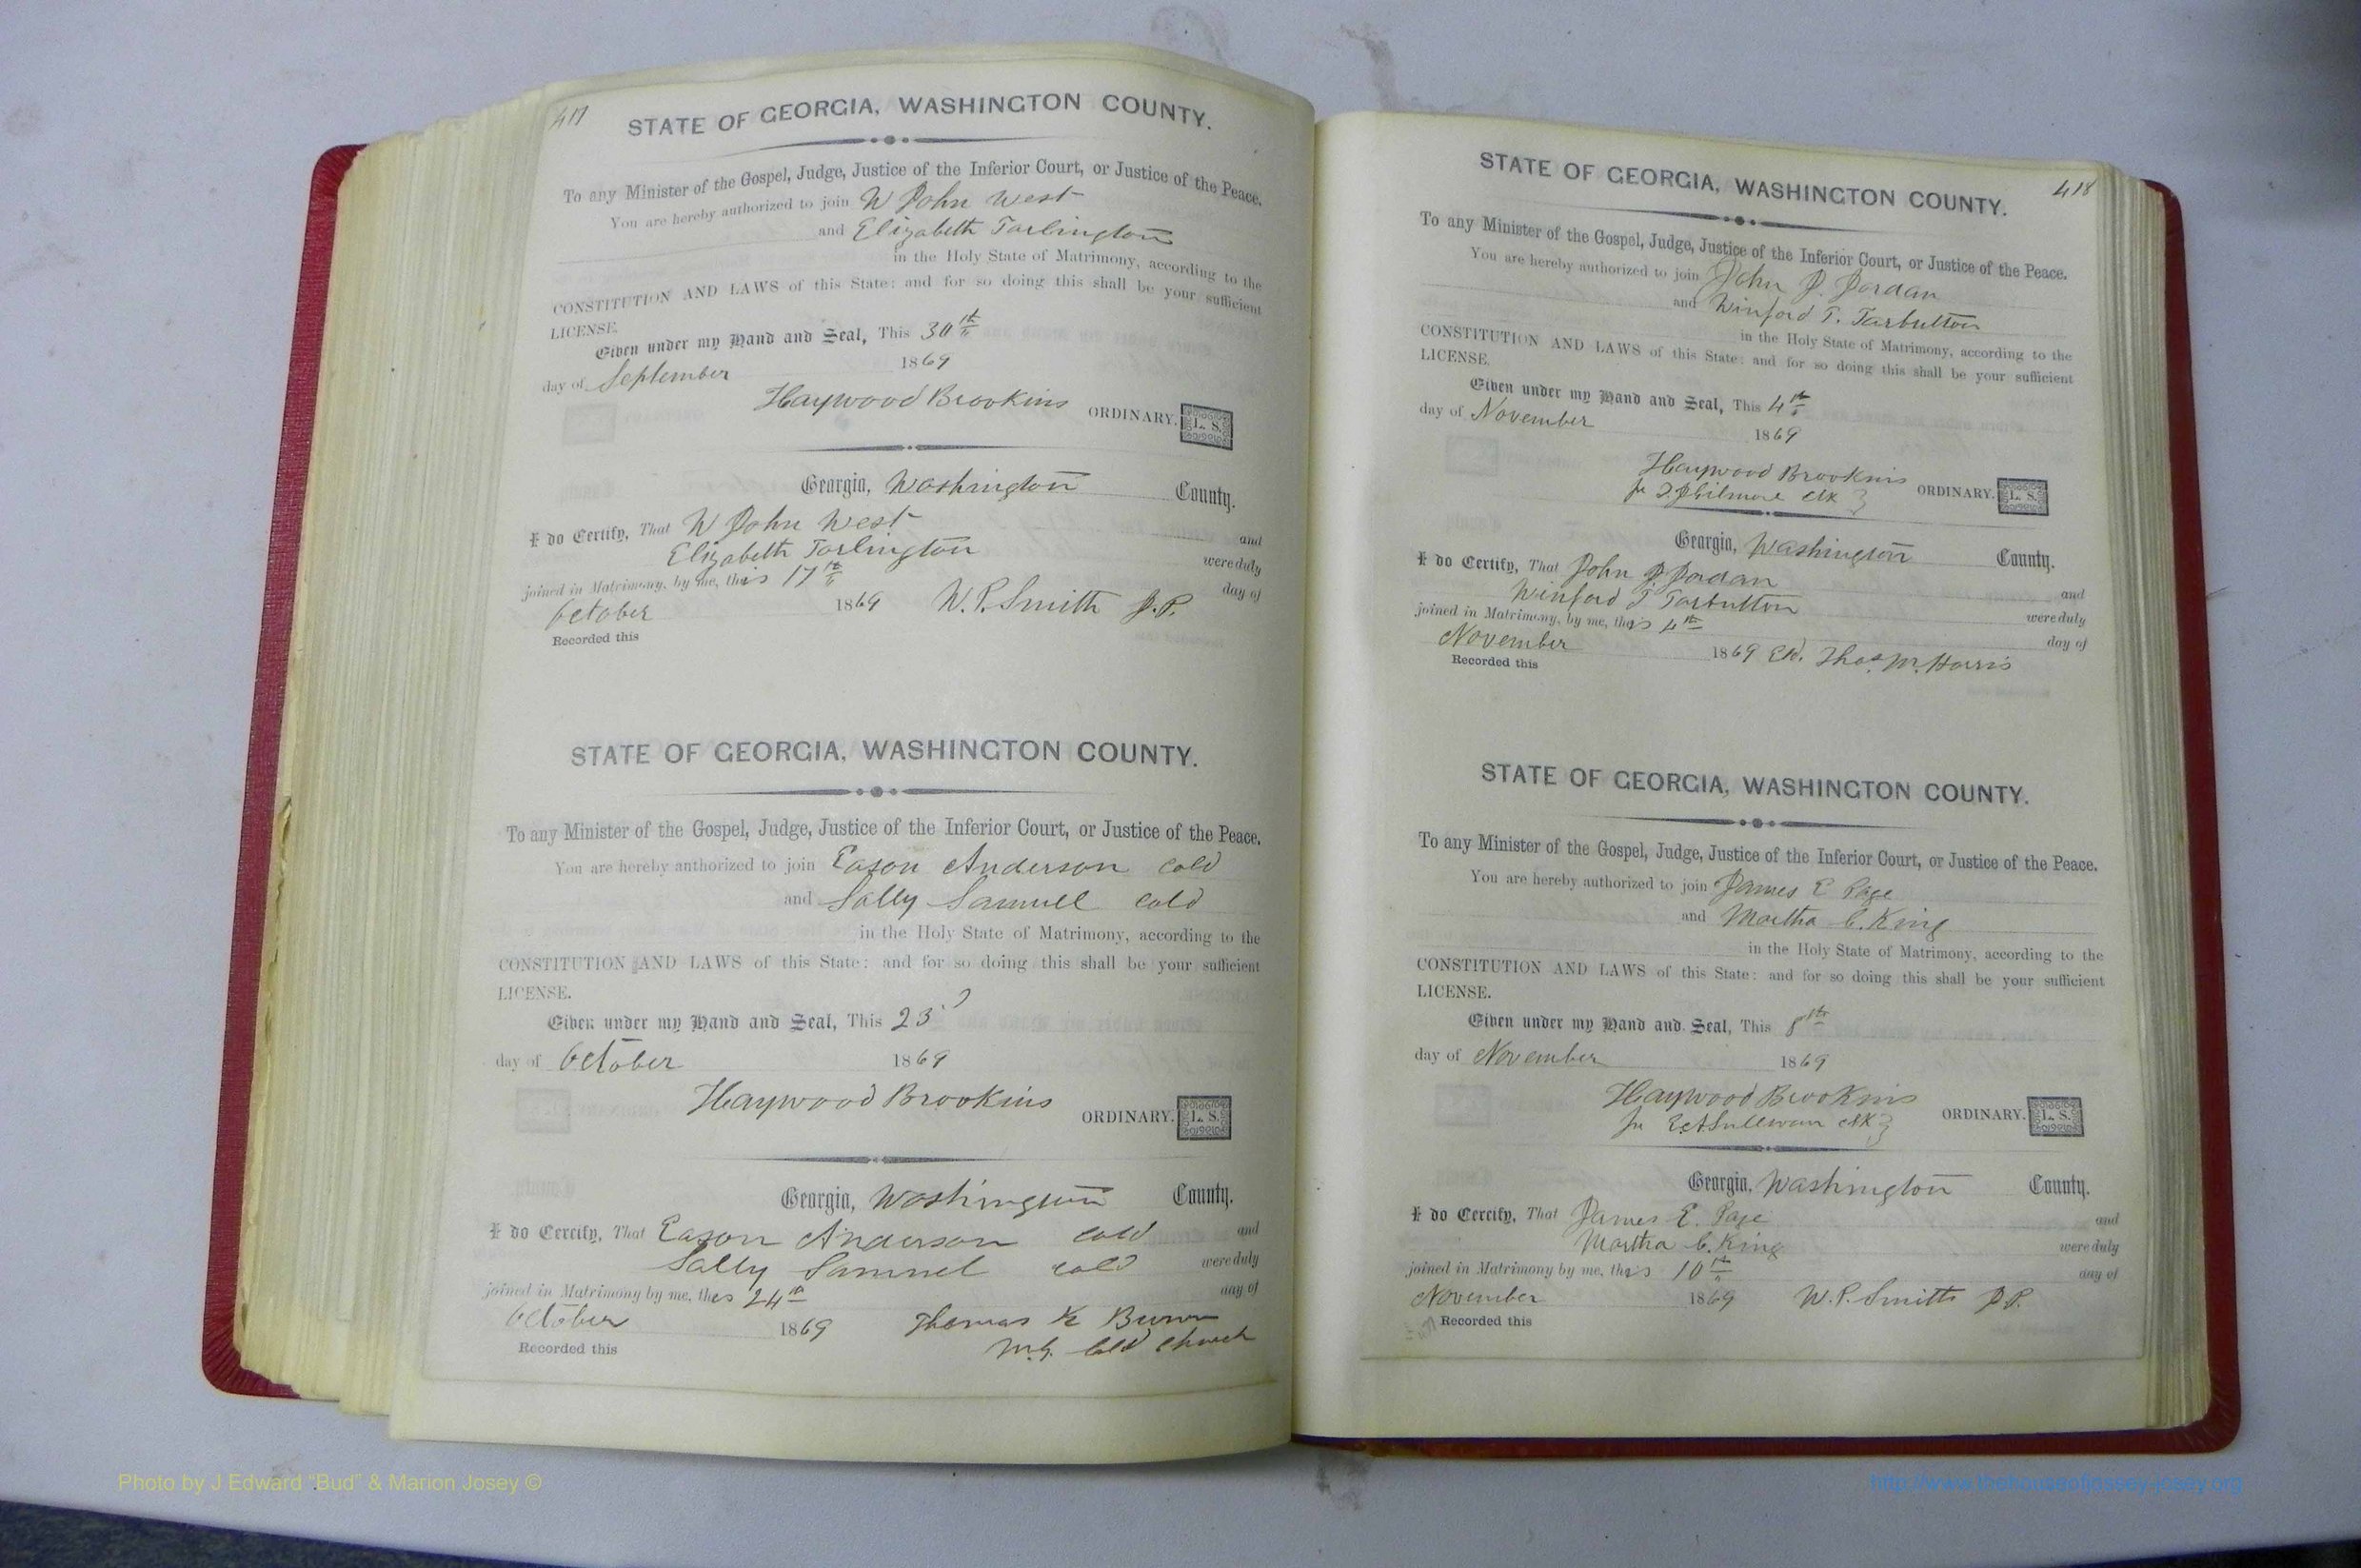 417
STATE OF GEORGIA, WASHINGTON COUNTY.
To any Minister of the Gospel, Judge, Justice of the Inferior Court, or Justice of the Peace.
You are hereby authorized to join W John West
and Elizabeth Tarlington
in the Holy State of Matrimony, according to the
CONSTITUTION AND LAWS of this State: and for so doing this shall be your sufficient
LICENSE.
Given under my Hand and Seal, This 30th
day of September 1869
Haywood Brookins ORDINARY. L. S.
Georgia, Washington County.
I do Certify, That W John West and
Elizabeth Tarlington were duly
joined in Matrimony, by me, this 17th day of
October 1869 W. P. Smith J. P.
Recorded this
STATE OF GEORGIA, WASHINGTON COUNTY.
To any Minister of the Gospel, Judge, Justice of the Inferior Court, or Justice of the Peace.
You are hereby authorized to join Eason Anderson cold
and Sally Samuel cold
in the Holy State of Matrimony, according to the
CONSTITUTION AND LAWS of this State: and for so doing this shall be your sufficient
LICENSE.
Given under my Hand and Seal, This 23d
day of October 1869
Haywood Brookins ORDINARY. L. S.
Georgia, Washington County.
I do Certify, That Eason Anderson cold and
Sally Samuel cold were duly
joined in Matrimony by me, this 24th day of
October 1869 Thomas K
M.G. Cold Church
Recorded this
418
STATE OF GEORGIA, WASHINGTON COUNTY.
To any Minister of the Gospel, Judge, Justice of the Inferior Court, or Justice of the Peace.
You are hereby authorized to join John J. Jordan
and Winford T. Tarbutton
in the Holy State of Matrimony, according to the
CONSTITUTION AND LAWS of this State: and for so doing this shall be your sufficient
LICENSE.
Given under my Hand and Seal, This 4th
day of November 1869
Haywood Brookins
Gilmore clk ORDINARY. L. S.
Georgia, Washington County.
I do Certify, That John J Jordan and
Winford T Tarbutton were duly
joined in Matrimony, by me, this 4th day of
November 1869 Eld. Thos. M. Harris
Recorded this
STATE OF GEORGIA, WASHINGTON COUNTY.
To any Minister of the Gospel, Judge, Justice of the Inferior Court, or Justice of the Peace.
You are hereby authorized to join James E Page
and Martha C. King
in the Holy State of Matrimony, according to the
CONSTITUTION AND LAWS of this State: and for so doing this shall be your sufficient
LICENSE.
Given under my Hand and Seal, This 8th
day of November 1869
Haywood Brookins
Sullivan clk ORDINARY. L. S.
Georgia, Washington County.
I do Certify, That James E. Page and
Martha C. King were duly
joined in Matrimony by me, this 10th day of
November 1869 W. P. Smith J. P.
Recorded this
Photo by J Edward "Bud" & Marion Josey ©
http://www.thehouseofjossey-josey.org